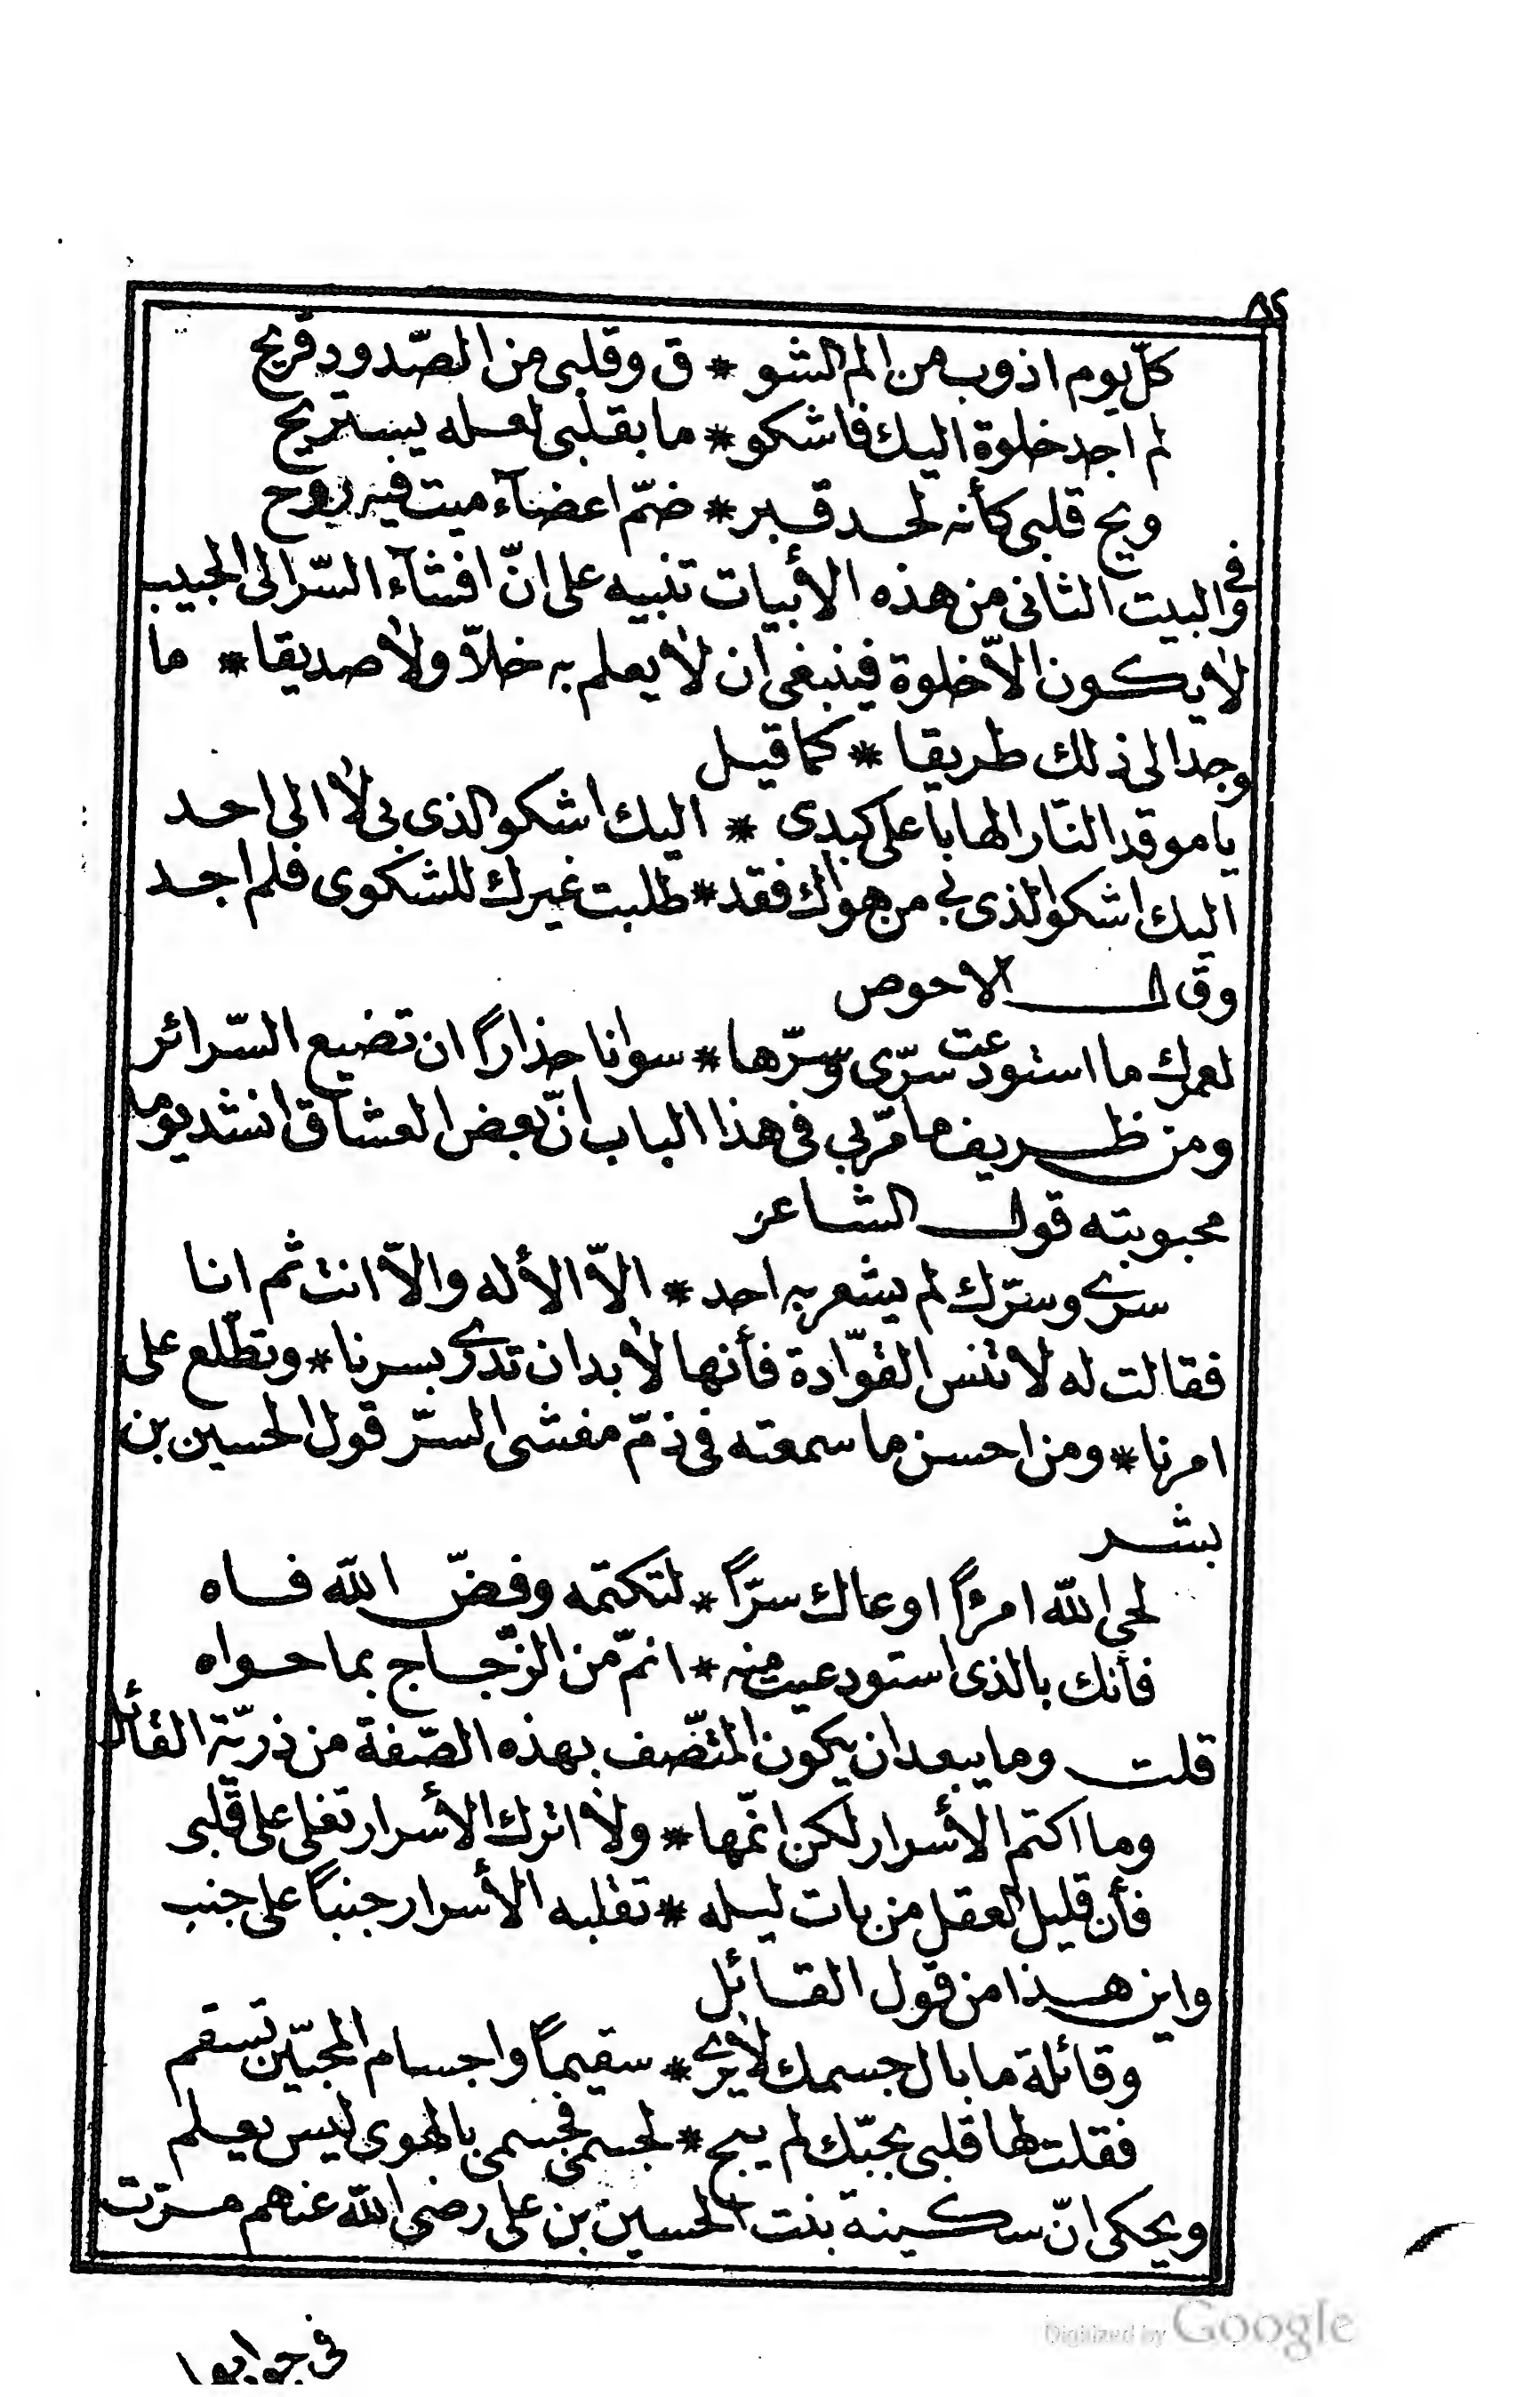 ٨٢
كلّ يوم اذوب من الم الشو * ق وقلبى من الصّدود قريح
لم اجد خلوة اليك فاشكو * ما بقلبى لعله يستريح
ويح قلبى كأنه لحد قبر * ضمّ اعضآء ميت فيه روح
وفى البيت الثانى من هذه الأبيات تنبيه على انّ افشآء السّر الى الحبيب
لا يكون الاّ خلوة فينبغى ان لا يعلم به خلاّ ولا صديقا * ما
وجد الى ذلك طريقا * كما قيل
يا موقد النّار الهابا على كبدى * اليك اشكو الذى بى لا الى احد
اليك اشكو الذى بى من هواك فقد * طلبت غيرك للشكوى فلم اجد
وقال الاحوص
لعمرك ما استودعت سرّى وسرّها * سوانا حذاراً ان تضيع السّرائر
ومن ظريف ما مرّ بى فى هذا الباب انّ بعض العشاق انشد يوما
محبوبته قول الشاعر
سرى وسرّك لم يشعر به احد * الاّ الأله والاّ انت ثم انا
فقالت له لا تنس القوّادة فأنها لا بد ان تدرى بسرنا * وتطّلع على
امرنا * ومن احسن ما سمعته فى ذمّ مفشى السرّ قول الحسين بن
بشر
لحى الله امرًا اوعاك سرّاً * لتكتمه وفضّ الله فاه
فأنك بالذى استودعيت منه * انمّ من الزّجاج بما حواه
قلت وما يبعد ان يكون المتصّف بهذه الصّفة من ذريّة القائل
وما اكتم الأسرار لكن انمّها * ولا اترك الأسرار تغلى على قلبى
فأن قليل العقل من بات ليله * تقلبه الأسرار جنباً على جنب
واين هذا من قول القائل
وقائلة ما بال جسمك لا يرى * سقيماً واجسام المحبّين تسقم
فقلت لها قلبى بحبّك لم يبح * لجسمى فجسمى بالهوى ليس يعلم
ويحكى انّ سكينة بنت الحسين بن على رضى الله عنهم مرّت
فى جواريها
Digitized by Google